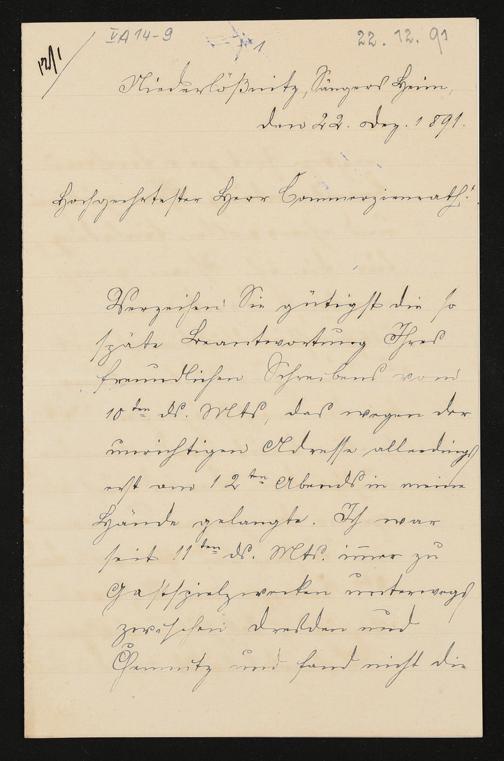 VA 14-9
1
22. 12. 91
12/1
Niederlößnitz, Sängers Heim,
den 22. Dez. 1891.
Hochgeehrtester Herr Commerzienrath!
Verzeihen Sie gütigst die so
späte Beantwortung Ihres
freundlichen Schreibens vom
10ten ds. Mts, das wegen der
unrichtigen Adresse allerdings
erst am 12ten Abends in meine
Hände gelangte. Ich war
seit 11ten ds. Mts. immer zu
Gastspielzwecken unterwegs
zwischen Dresden und
Chemnitz und fand nicht die